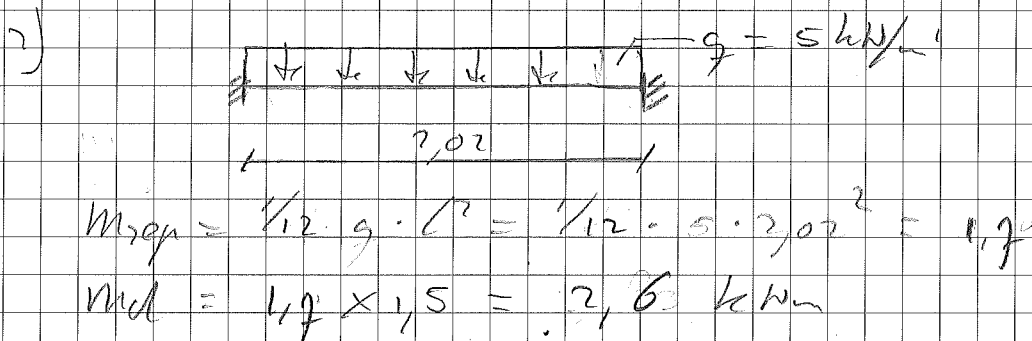 2)
q = 5 kN/m'
2,02
M = 1/12 · q · l² = 1/12 · 5 · 2,02² = 1,7
Md = 1,7 × 1,5 = 2,6 kNm